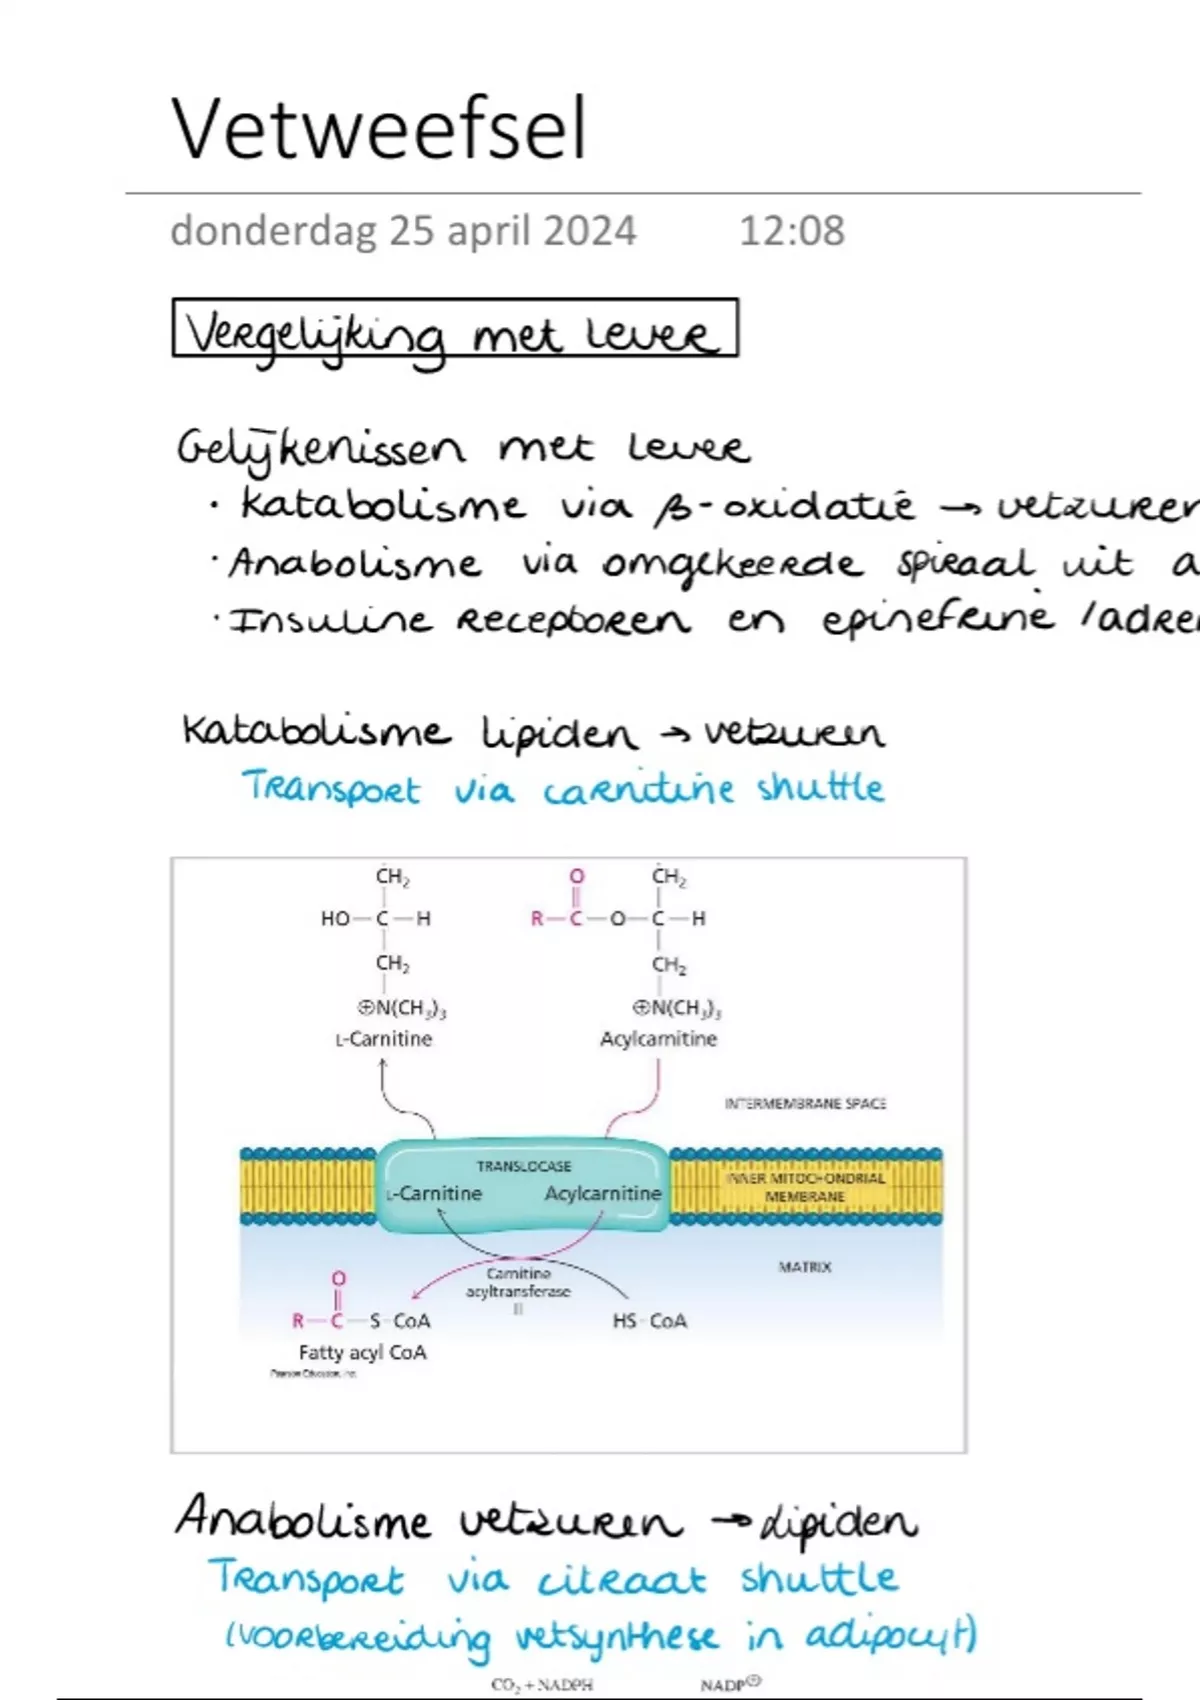 Vetweefsel
donderdag 25 april 2024 12:08
Vergelijking met lever
Gelijkenissen met lever
· Katabolisme via β-oxidatie → vetzuren
· Anabolisme via omgekeerde spiraal uit a
· Insuline receptoren en epinefrine /adre
Katabolisme lipiden → vetzuren
Transport via carnitine shuttle
CH₂ O CH₂
HO—C—H R—C—O—C—H
CH₂ CH₂
⊕N(CH₃)₃ ⊕N(CH₃)₃
L-Carnitine Acylcarnitine
INTERMEMBRANE SPACE
TRANSLOCASE
L-Carnitine Acylcarnitine
INNER MITOCHONDRIAL
MEMBRANE
MATRIX
Carnitine
acyltransferase
II
O
R—C—S-CoA HS-CoA
Fatty acyl CoA
Pearson Education, Inc.
Anabolisme vetzuren → lipiden
Transport via citraat shuttle
(voorbereiding vetsynthese in adipocyt)
CO₂ + NADPH NADP⊕